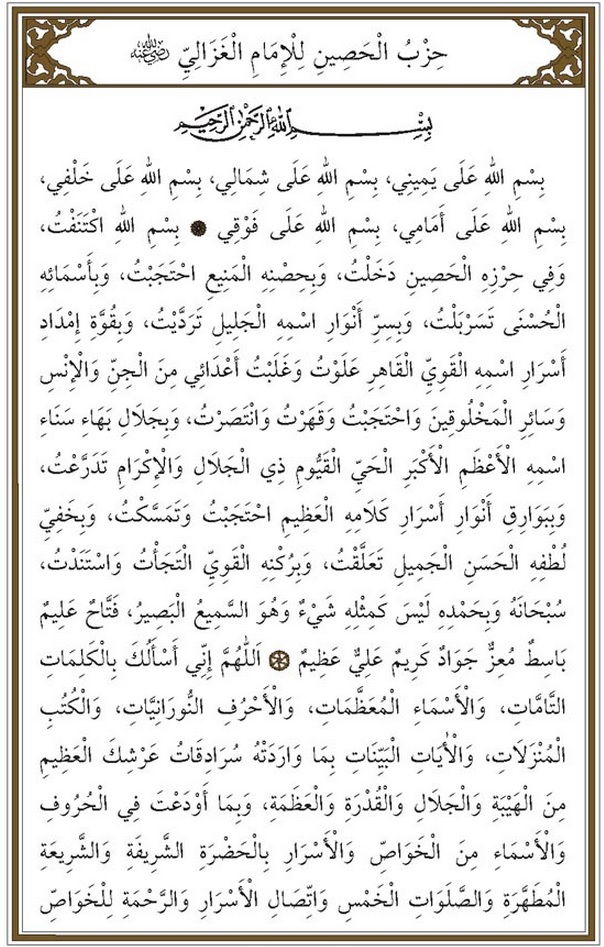 حِزْبُ الْحَصِينِ لِلْإِمَامِ الْغَزَالِيِّ رضي الله عنه
بِسْمِ اللهِ الرَّحْمٰنِ الرَّحِيمِ
بِسْمِ اللهِ عَلَى يَمِينِي، بِسْمِ اللهِ عَلَى شِمَالِي، بِسْمِ اللهِ عَلَى خَلْفِي،
بِسْمِ اللهِ عَلَى أَمَامِي، بِسْمِ اللهِ عَلَى فَوْقِي ۞ بِسْمِ اللهِ اكْتَنَفْتُ،
وَفِي حِرْزِهِ الْحَصِينِ دَخَلْتُ، وَبِحِصْنِهِ الْمَنِيعِ احْتَجَبْتُ، وَبِأَسْمَائِهِ
الْحُسْنَى تَسَرْبَلْتُ، وَبِسِرِّ أَنْوَارِ اسْمِهِ الْجَلِيلِ تَرَدَّيْتُ، وَبِقُوَّةِ إِمْدَادِ
أَسْرَارِ اسْمِهِ الْقَوِيِّ الْقَاهِرِ عَلَوْتُ وَغَلَبْتُ أَعْدَائِي مِنَ الْجِنِّ وَالْإِنْسِ
وَسَائِرِ الْمَخْلُوقِينَ وَاحْتَجَبْتُ وَقَهَرْتُ وَانْتَصَرْتُ، وَبِجَلَالِ بَهَاءِ سَنَاءِ
اسْمِهِ الْأَعْظَمِ الْأَكْبَرِ الْحَيِّ الْقَيُّومِ ذِي الْجَلَالِ وَالْإِكْرَامِ تَدَرَّعْتُ،
وَبِبَوَارِقِ أَنْوَارِ أَسْرَارِ كَلَامِهِ الْعَظِيمِ احْتَجَبْتُ وَتَمَسَّكْتُ، وَبِخَفِيِّ
لُطْفِهِ الْحَسَنِ الْجَمِيلِ تَعَلَّقْتُ، وَبِرُكْنِهِ الْقَوِيِّ الْتَجَأْتُ وَاسْتَنَدْتُ،
سُبْحَانَهُ وَبِحَمْدِهِ لَيْسَ كَمِثْلِهِ شَيْءٌ وَهُوَ السَّمِيعُ الْبَصِيرُ، فَتَّاحٌ عَلِيمٌ
بَاسِطٌ مُعِزٌّ جَوَادٌ كَرِيمٌ عَلِيٌّ عَظِيمٌ ۞ اَللّٰهُمَّ إِنِّي أَسْأَلُكَ بِالْكَلِمَاتِ
التَّامَّاتِ، وَالْأَسْمَاءِ الْمُعَظَّمَاتِ، وَالْأَحْرُفِ النُّورَانِيَّاتِ، وَالْكُتُبِ
الْمُنْزَلَاتِ، وَالْأٰيَاتِ الْبَيِّنَاتِ بِمَا وَارَدَتْهُ سُرَادِقَاتُ عَرْشِكَ الْعَظِيمِ
مِنَ الْهَيْبَةِ وَالْجَلَالِ وَالْقُدْرَةِ وَالْعَظَمَةِ، وَبِمَا أَوْدَعْتَ فِي الْحُرُوفِ
وَالْأَسْمَاءِ مِنَ الْخَوَاصِّ وَالْأَسْرَارِ بِالْحَضْرَةِ الشَّرِيفَةِ وَالشَّرِيعَةِ
الْمُطَهَّرَةِ وَالصَّلَوَاتِ الْخَمْسِ وَاتِّصَالِ الْأَسْرَارِ وَالرَّحْمَةِ لِلْخَوَاصِّ